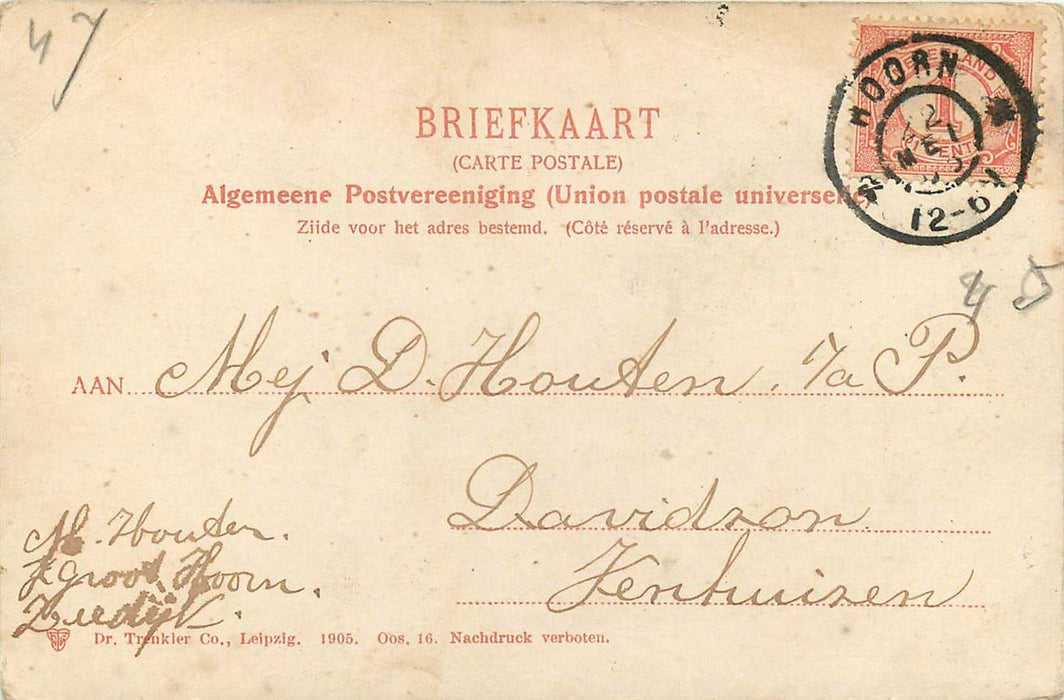 47
NEDERLAND
1
CENT
HOORN
2
MEI
12-6 N
BRIEFKAART
(CARTE POSTALE)
Algemeene Postvereeniging (Union postale universelle)
Zijde voor het adres bestemd. (Côté réservé à l'adresse.)
45
AAN Mej D. Houten. 7a P.
Davidson
Venhuizen
M. Houten.
groot Hoorn.
Zeedijk.
Dr. Trenkler Co., Leipzig. 1905. Oos. 16. Nachdruck verboten.